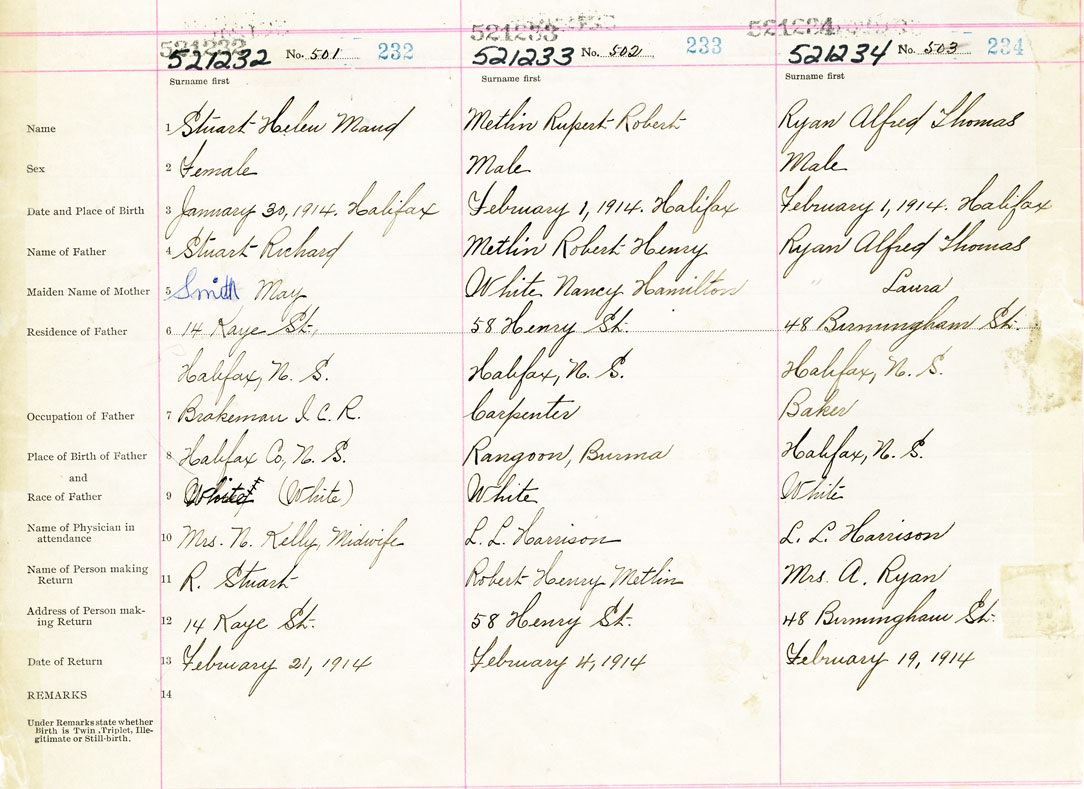 521232 521233 521234
521232 No. 501 232 521233 No. 502 233 521234 No. 503 234
Surname first Surname first Surname first
Name 1 Stuart Helen Maud Metlin Rupert Robert Ryan Alfred Thomas
Sex 2 Female Male Male
Date and Place of Birth 3 January 30, 1914. Halifax February 1, 1914. Halifax February 1, 1914. Halifax
Name of Father 4 Stuart Richard Metlin Robert Henry Ryan Alfred Thomas
Maiden Name of Mother 5 Smith May White Nancy Hamilton " Laura
Residence of Father 6 14 Kaye St., 58 Henry St. 48 Birmingham St.
Halifax, N. S. Halifax, N. S. Halifax, N. S.
Occupation of Father 7 Brakeman I. C. R. Carpenter Baker
Place of Birth of Father 8 Halifax Co, N. S. Rangoon, Burma Halifax, N. S.
and
Race of Father 9 White (White) White White
Name of Physician in
attendance 10 Mrs. N. Kelly, Midwife L. L. Harrison L. L. Harrison
Name of Person making
Return 11 R. Stuart Robert Henry Metlin Mrs. A. Ryan
Address of Person mak-
ing Return 12 14 Kaye St. 58 Henry St. 48 Birmingham St.
Date of Return 13 February 21, 1914 February 4, 1914 February 19, 1914
REMARKS 14
Under Remarks state whether
Birth is Twin, Triplet, Ille-
gitimate or Still-birth.